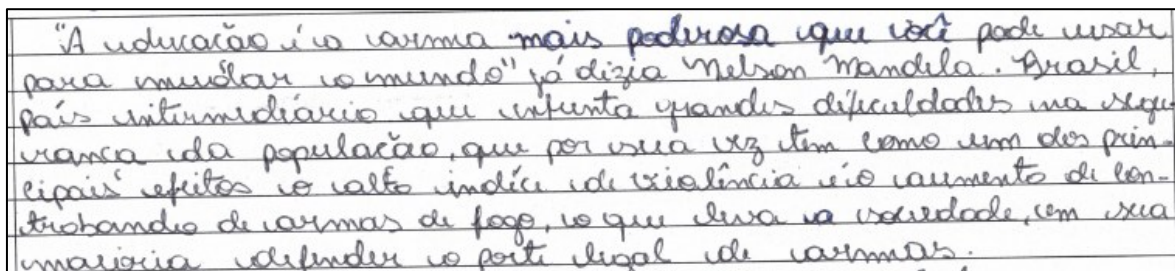 "A educação é a arma mais poderosa que você pode usar
para mudar o mundo" já dizia Nelson Mandela. Brasil,
país intermediário que enfrenta grandes dificuldades na segu
rança da população, que por sua vez tem como um dos prin-
cipais efeitos o alto indíce de violência e o aumento de con-
trabando de armas de fogo, o que leva a sociedade, em sua
maioria defender o porte legal de armas.